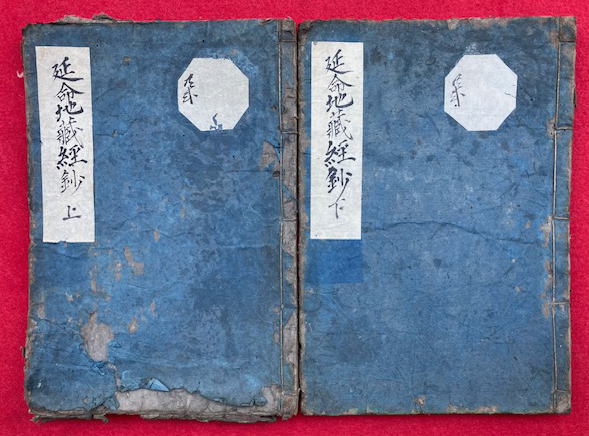 延命地藏經鈔 上
延命地藏經鈔 下